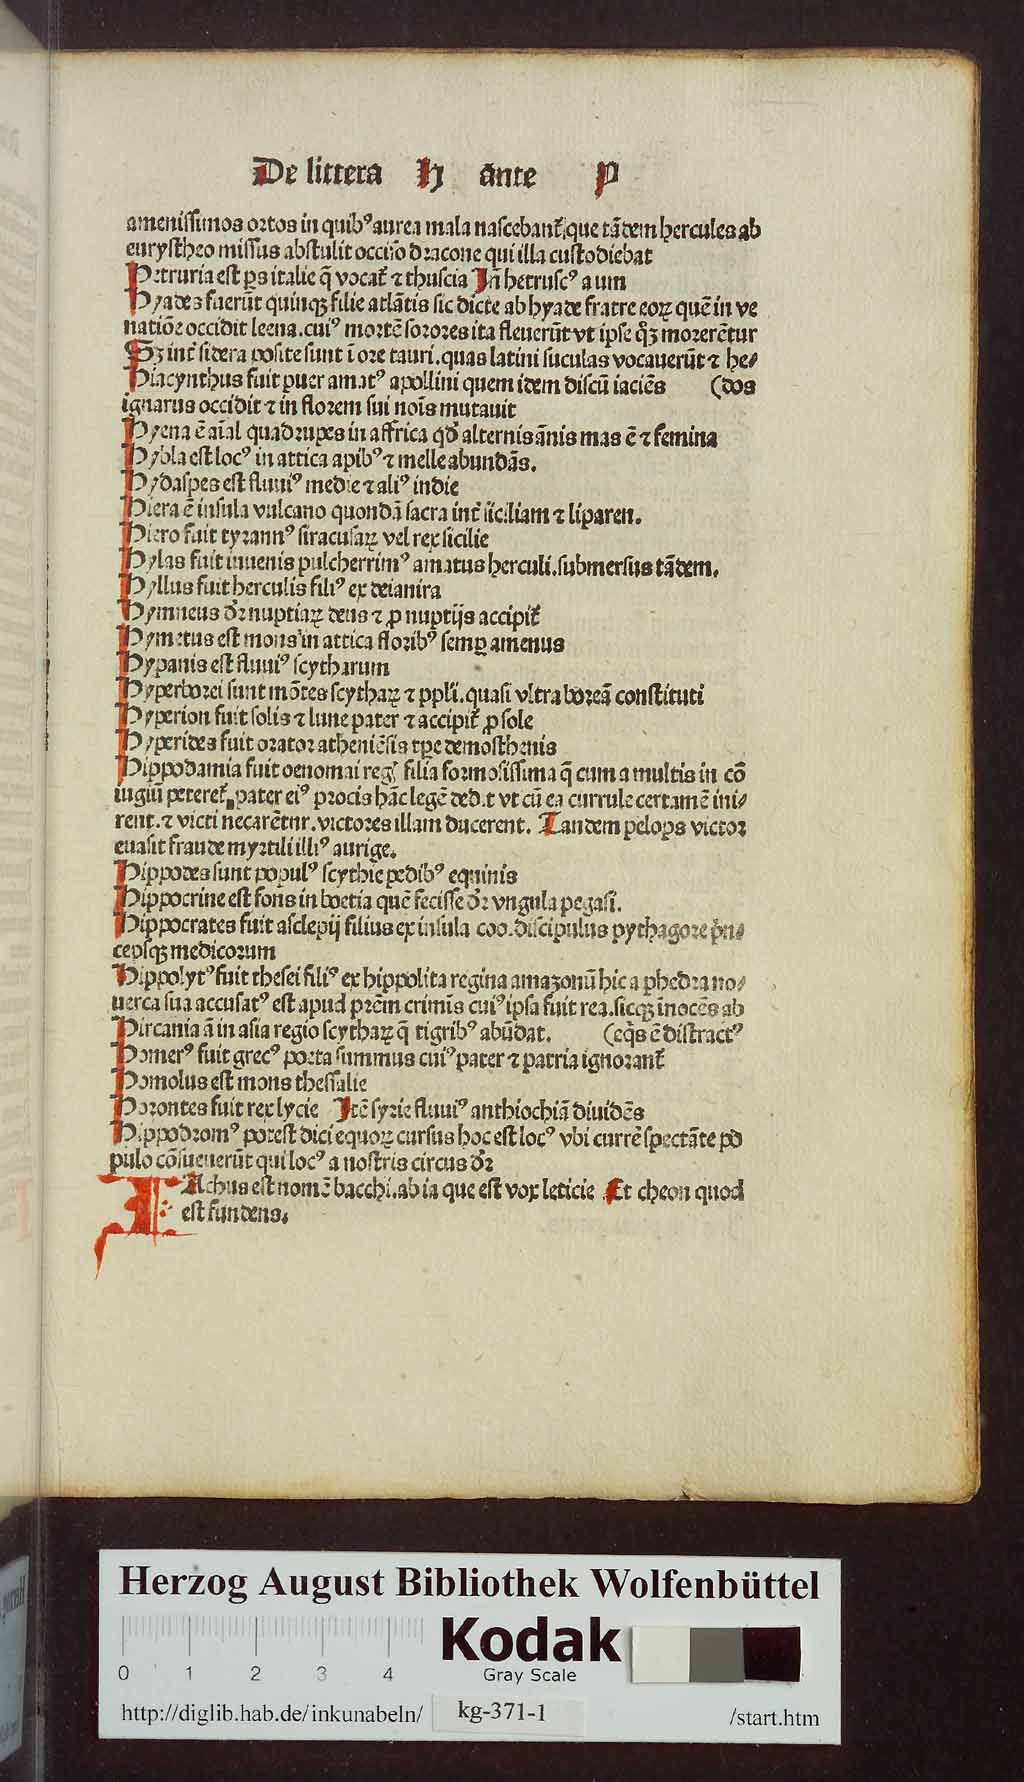 De littera H ante P
amenissimos ortos in quibꝰ aurea mala nascebant᷑, que tādem hercules ab
eurystheo missus abstulit occiso dracone qui illa custodiebat
Hetruria est ꝑs italie q̄ vocat᷑ ⁊ thuscia In̄ hetruscꝰ a um
Hyades fuerūt quinqꝫ filie atlātis sic dicte ab hyade fratre eoꝝ quē in ve
natiōe occidit leena. cuiꝰ mortē sorores ita fleuerūt vt ipse qꝫ morerētur
Sꝫ int᷑ sidera posite sunt ī ore tauri. quas latini suculas vocauerūt ⁊ he⸗
Hiacynthus fuit puer amatꝰ apollini quem idem discū iaciēs (dos
ignarus occidit ⁊ in florem sui noīs mutauit
Hyena ē aīal quadrupes in affrica qd̓ alternis ānis mas ē ⁊ femina
Hybla est locꝰ in attica apibꝰ ⁊ melle abundās.
Hydaspes est fluuiꝰ medie ⁊ aliꝰ indie
Hiera ē insula vulcano quondā sacra int᷑ siciliam ⁊ liparen.
Hiero fuit tyrannꝰ siracusaꝝ vel rex sicilie
Hylas fuit iuuenis pulcherrimꝰ amatus herculi. submersus tādem.
Hyllus fuit herculis filiꝰ ex deianira
Hymneus dr̄ nuptiaꝝ deus ⁊ ꝓ nuptijs accipit᷑
Hymetus est mons in attica floribꝰ semꝑ amenus
Hypanis est fluuiꝰ scytharum
Hyperborei sunt mōtes scythaꝝ ⁊ ppli. quasi vltra boreā constituti
Hyperion fuit solis ⁊ lune pater ⁊ accipit᷑ ꝓ sole
Hyperides fuit orator atheniēsis tpe demosthenis
Hippodamia fuit oenomai regꝭ filia formosissima q̄ cum a multis in cō
iugiū peteret᷑, pater eiꝰ procis hāc legē dedit vt cū ea currule certamē ini⸗
rent. ⁊ victi necarētur. victores illam ducerent. Tandem pelops victor
euasit fraude myrtili illiꝰ aurige.
Hippodes sunt populꝰ scythie pedibꝰ equinis
Hippocrine est fons in boetia quē fecisse dr̄ vngula pegasi.
Hippocrates fuit asclepij filius ex insula coo. discipulus pythagore prin⸗
cepsqꝫ medicorum
Hippolytꝰ fuit thesei filiꝰ ex hippolita regina amazonū hic a phedra no⸗
uerca sua accusatꝰ est apud prēm crimīs cuiꝰ ipsa fuit rea. sicqꝫ īnocēs ab
Hircania ā in asia regio scythaꝝ q̄ tigribꝰ abūdat. (eq̄s ē distractꝰ
Homerꝰ fuit grecꝰ poeta summus cuiꝰ pater ⁊ patria ignorant᷑
Homolus est mons thessalie
Horontes fuit rex lycie Itē syrie fluuiꝰ anthiochiā diuidēs
Hippodromꝰ potest dici equoꝝ cursus hoc est locꝰ vbi currē spectāte po
pulo cōsueuerūt qui locꝰ a nostris circus dr̄
IAchus est nomē bacchi. ab ia que est vox leticie Et cheon quod
est fundens.
Herzog August Bibliothek Wolfenbüttel
0 1 2 3 4
Kodak
Gray Scale
http://diglib.hab.de/inkunabeln/ kg-371-1 /start.htm